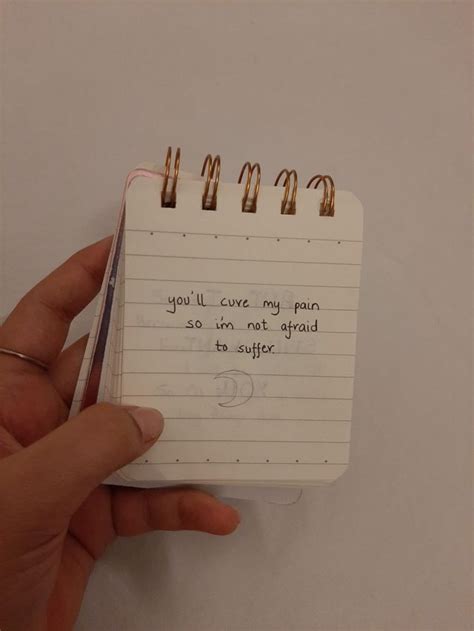 you'll cure my pain
so i'm not afraid
to suffer.